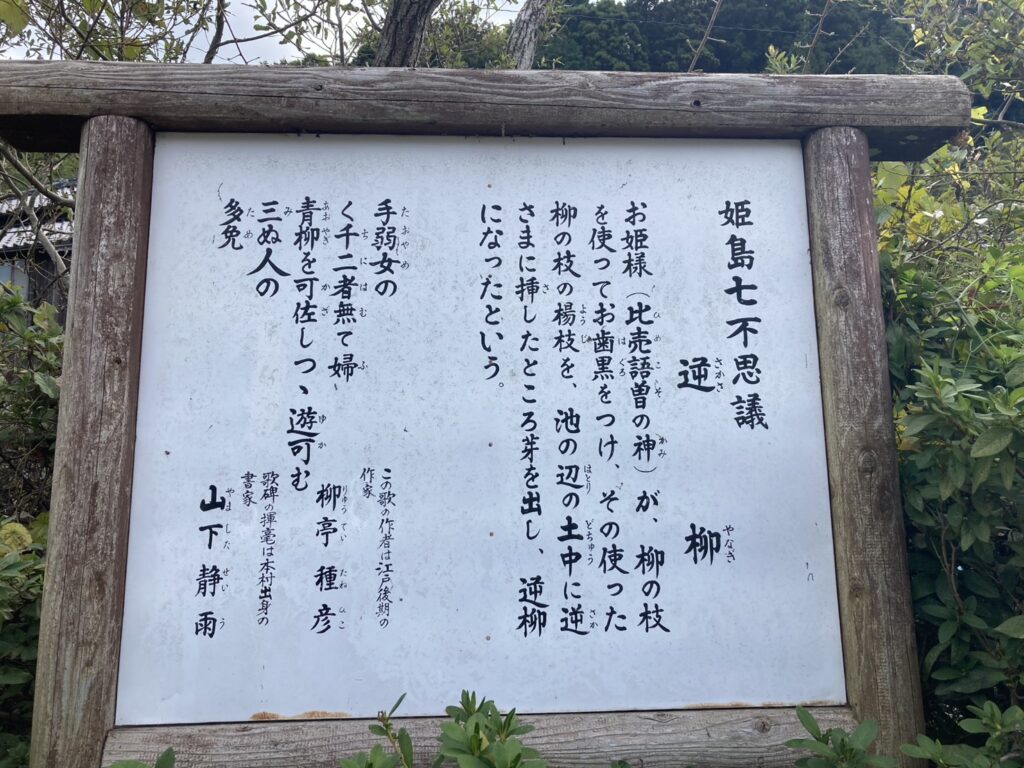 姫島七不思議
逆 柳
お姫様（比売語曽の神）が、柳の枝
を使ってお歯黒をつけ、その使った
柳の枝の楊枝を、池の辺の土中に逆
さまに挿したところ芽を出し、逆柳
になったという。
手弱女の
く千二者無て婦
青柳を可佐しつゝ遊可む
三ぬ人の
多免
この歌の作者は江戸後期の
作家
柳亭種彦
歌碑の揮毫は本村出身の
書家
山下静雨